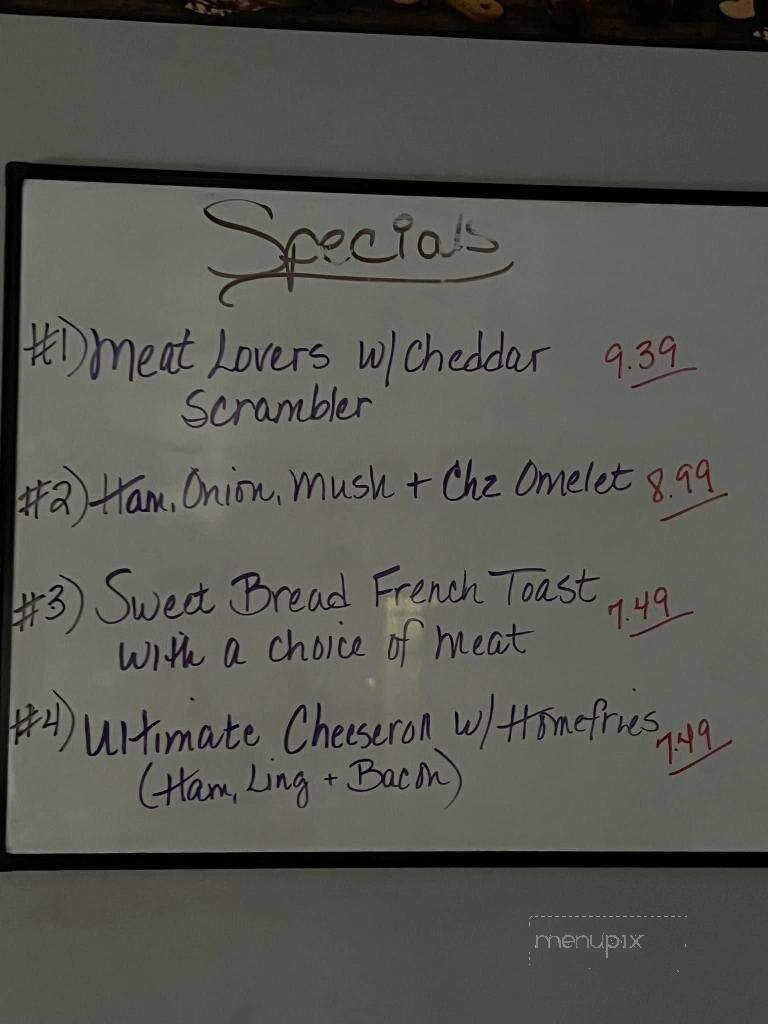 Specials
#1) Meat Lovers w/ Cheddar 9.39
Scrambler
#2) Ham, Onion, Mush + Chz Omelet 8.99
#3) Sweet Bread French Toast 7.49
with a choice of meat
#4) Ultimate Cheeseron w/ Homefries 7.49
(Ham, Ling + Bacon)
menupix